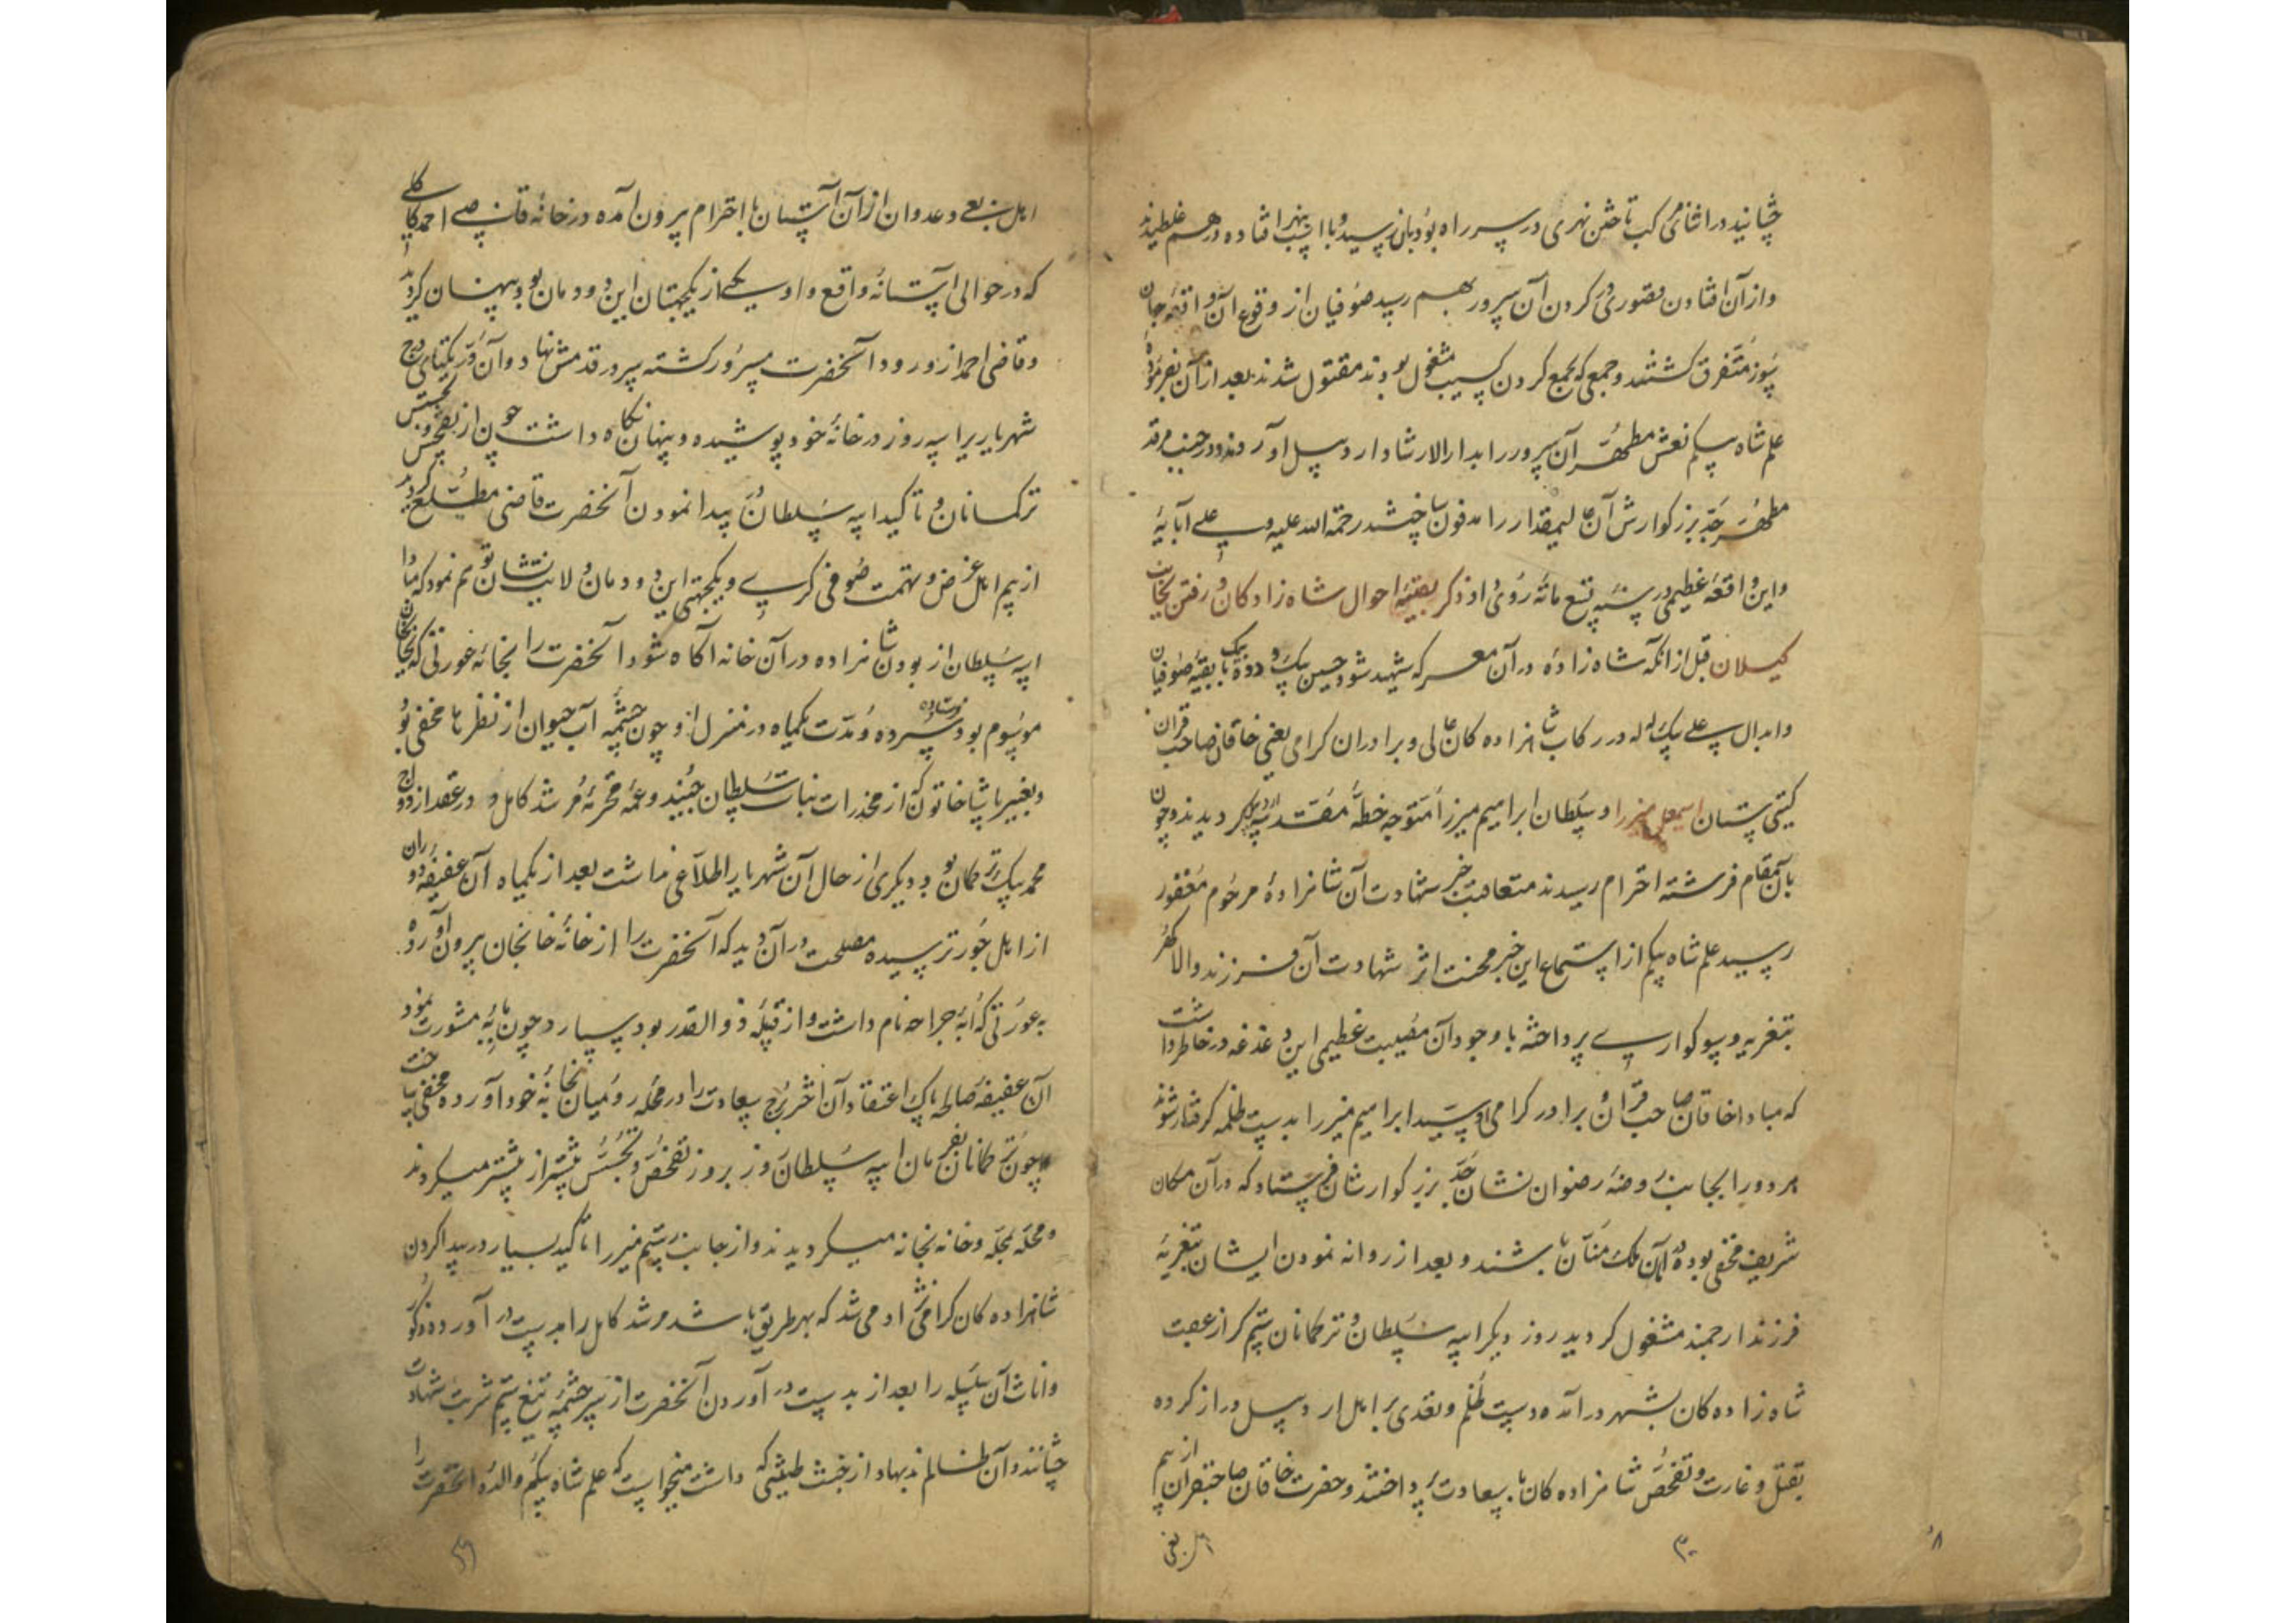 چشانید در اثنای مرکب تاختن نهری در سر راه بود بان رسید و با اسب بنهر افتاده در هم غلطیدند
واز آن افتادن قصوری در کردن آن سرور بهم رسید صوفیان از وقوع آن واقعه جان
سوز متفرق کشتند و جمعی که بجمع کردن مشغول بودند مقتول شدند بعد از آن بفرموده
علم شاه بیکم نعش مطهر آن سرور را بدار الارشاد اردبیل آوردند و در جنب مرقد
مطهر جد بزرکوارش آن عالیمقدار را مدفون ساختند رحمة الله علیه و علی آبایه
واین واقعه عظیمی در سنه تسع مائه روی داد ذکر بقیه احوال شاه زادکان و رفتن بجانب
کیلان قبل از آنکه شاه زاده در آن معرکه شهید شود حسین بیک و دده بیک با بقیه صوفیان
وابدال علی بیک لله در رکاب شاهزاده کان عالی و برادران کرامی یعنی خاقان صاحب قران
کیتی ستان اسمعیل میرزا و سلطان ابراهیم میرزا متوجه خطه مقدسه اردبیل کردیدند و چون
بآن مقام فرشته احترام رسیدند متعاقب خبر شهادت آن شاهزاده مرحوم مغفور
رسید علم شاه بیکم از استماع این خبر محنت اثر شهادت آن فرزند والا کهر
بتعزیه و سوکواری پرداخته با وجود آن مصیبت عظیمی این دغدغه در خاطر داشت
که مبادا خاقان صاحب قران و برادر کرامی او سید ابراهیم میرزا بدست ظلمه کرفتار شوند
هر دو را بجانب روضه رضوان نشان جد بزرکوارشان فرستاد که در آن مکان
شریف مخفی بوده در امان ملک منان باشند و بعد از روانه نمودن ایشان بتعزیه
فرزند ارجمند مشغول کردید روز دیکر ایبه سلطان و ترکمانان ستم کر از عقب
شاه زاده کان بشهر در آمده دست ظلم و تعدی بر اهل اردبیل دراز کرده
بقتل و غارت و تفحص شاهزاده کان با سعادت پرداختند و حضرت خاقان صاحبقران از بیم
اهل بغی
۳۰
۸
اهل بغی و عدوان از آن آستان با احترام بیرون آمده در خانه قاضی احمد کاکلی
که در حوالی آستانه واقع و او یکی از یکجهتان این دودمان بود پنهان کردید
و قاضی احمد از ورود آنحضرت مسرور کشته سر در قدمش نهاد و آن در یکتای درج
شهریاریرا سه روز در خانه خود پوشیده و پنهان نکاه داشت چون از تفحص و تجسس
ترکمانان و تاکید ایبه سلطان و پیدا نمودن آنحضرت قاضی مطلع کردید
از بیم اهل غرض و تهمت صوفی کری و یکجهتی این دودمان ولایت نشان توهم نمود که مبادا
ایبه سلطان از بودن شاهزاده در آن خانه آکاه شود آنحضرت را بخانه عورتی که بخانجان
موسوم بود فرستاده سپرده و مدت یکماه در منزل او چون چشمه آب حیوان از نظرها مخفی بود
و بغیر پاشا خاتون که از مخدرات بنات سلطان جنید و عمه محترمه مرشد کامل و در عقد ازدواج
محمد بیک ترکمان بود دیکری از حال آن شهریار اطلاعی نداشت بعد از یکماه آن عفیفه دوران
از اهل جور ترسیده مصلحت در آن دید که آنحضرت را از خانه خانجان بیرون آورده
به عورتی که ابه جراحه نام داشت و از قبیله ذوالقدر بود بسپارد چون با ابه مشورت نمود
آن عفیفه صالحه پاک اعتقاد آن اختر برج سعادت را در محله رومیان بخانه خود آورده مخفی ساخت
و چون ترکمانان بفرمان ایبه سلطان روز بروز تفحص و تجسس بیشتر از پیشتر میکردند
و محله بمحله و خانه بخانه میکردیدند و از جانب رستم میرزا تاکید بسیار در پیدا کردن
شاهزاده کان کرامی نژاد می شد که بهر طریق باشد مرشد کامل را بدست در آورده ذکور
و اناث آن سلسله را بعد از بدست در آوردن آنحضرت از سرچشمه تیغ ستم شربت شهادت
چشانند و آن ظالم بدنهاد از خبث طینتی که داشت میخواست که علم شاه بیکم والده آنحضرت را